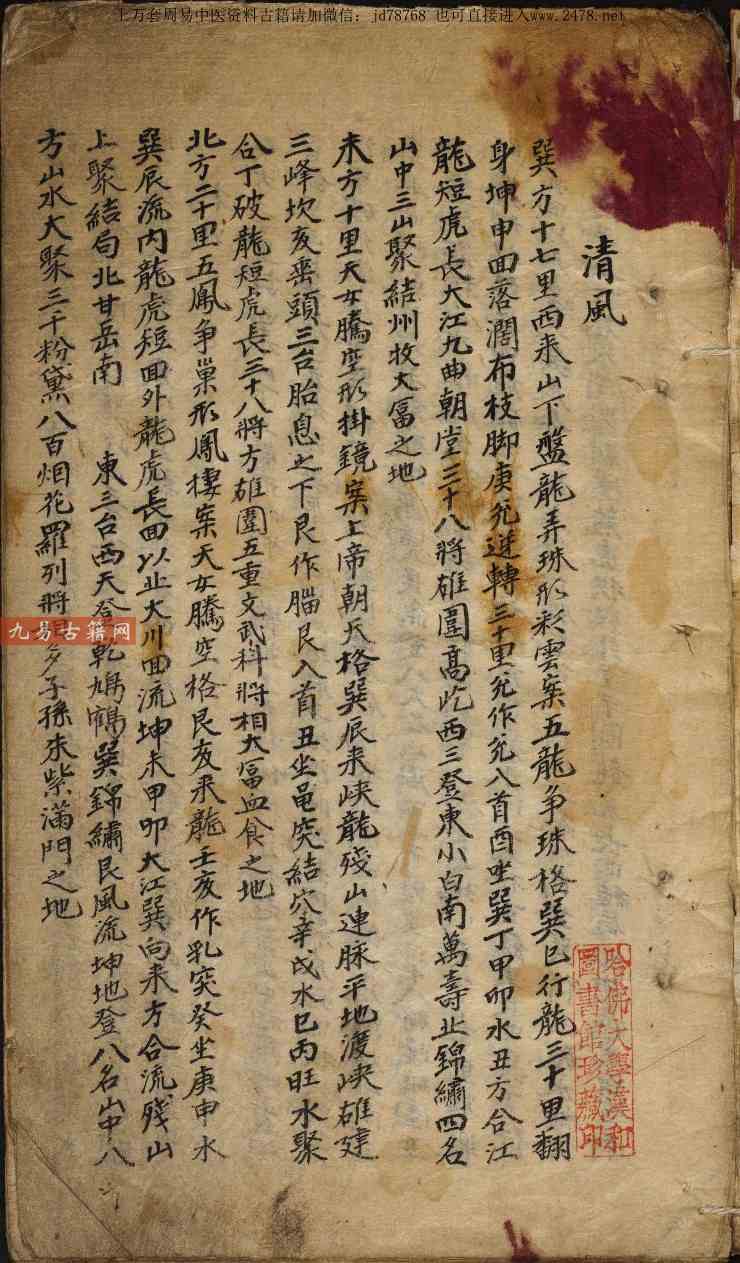 上万套周易中医资料古籍请加微信：jd78768 也可直接进入www.2478.net
清風
巽方十七里西来山下盤龍弄珠形彩雲案五龍争珠格巽巳行龍三十里翻
身坤申回落濶布枝脚庚兊逆轉三十里兊作兊入首酉坐巽丁甲卯水丑方合江
龍短虎長大江九曲朝堂三十八將雄圍高屹西三登東小白南萬壽北錦繡四名
山中三山聚結州牧大冨之地
未方十里天女騰空形掛鏡案上帝朝天格巽辰来峽龍殘山連脉平地渡峽雄建
三峰坎亥垂頭三台胎息之下艮作腦艮入首丑坐黾突結穴辛戌水巳丙旺水聚
合丁破龍短虎長三十八將方雄圍五重文武科將相大冨血食之地
北方二十里五鳳争巢形鳳棲案天女騰空格艮亥来龍壬亥作乳突癸坐庚申水
巽辰流内龍虎短回外龍虎長回以止大川回流坤未甲卯大江巽向来方合流殘山
上聚結局北甘岳南 東三台西天登乾鳩鶴巽錦繡艮風流坤地登八名山中八
方山水大聚三千粉黛八百烟花羅列將相多子孫朱紫滿門之地
哈佛大學漢和
圖書館珍藏印
九易古籍网